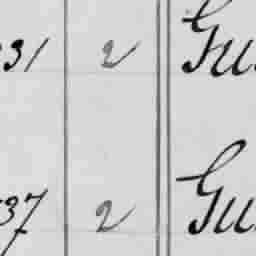 31 2 Gu
37 2 Gu